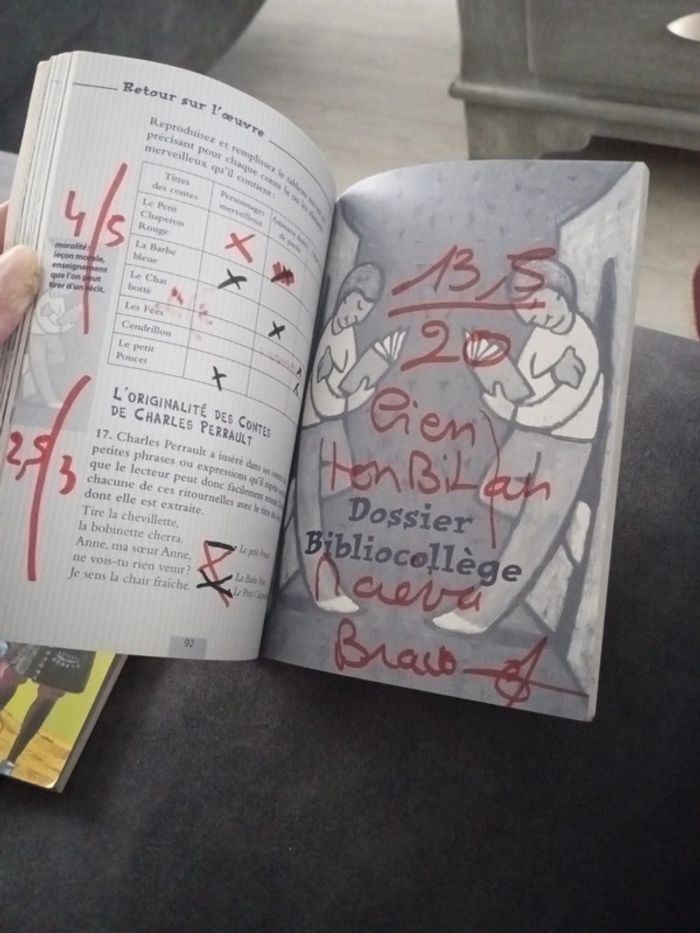 Retour sur l'œuvre
Reproduisez et remplissez le tableau
précisant pour chaque conte le ou les
merveilleux qu'il contient :
Titres
des contes
Personnages
merveilleux
Le Petit
Chaperon
Rouge
La Barbe
bleue
Le Chat
botté
Les Fées
Cendrillon
Le petit
Poucet
4/5
moralité :
leçon morale,
enseignement
que l'on peut
tirer d'un récit.
2,5/3
L'ORIGINALITÉ DES CONTES
DE CHARLES PERRAULT
17. Charles Perrault a inséré dans ses
petites phrases ou expressions qu'il
que le lecteur peut donc facilement
chacune de ces ritournelles avec le titre du
dont elle est extraite.
Tire la chevillette,
la bobinette cherra.
Anne, ma sœur Anne,
ne vois-tu rien venir ?
Je sens la chair fraîche.
Le petit
La Barbe
Le Petit
92
13,5
20
Bien
ton Bilan
Dossier
Bibliocollège
Maeva
Bravo